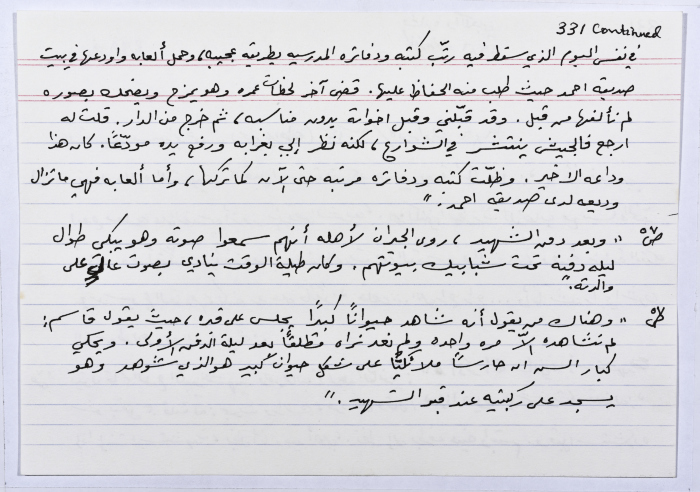 331 Continued
في نفس اليوم الذي سقط فيه رتّب كتبه ودفاتره المدرسيه بطريقه عجيبه، وحمل ألعابه واودعها في بيت
صديقه احمد حيث طلب منه الحفاظ عليها. قضى آخر لحظات عمره وهو يمزح ويضحك بصوره
لم نألفها من قبل. وقد قبّلني وقبل اخوانه بدون مناسبه، ثم خرج من الدار. قلت له
ارجع فالجيش ينتشر في الشوارع، لكنه نظر إليّ بغرابه ورفع يده مودّعًا. كان هذا
وداعه الاخير. وظلّت كتبه ودفاتره مرتبه حتى الآن كما تركها، وأما ألعابه فهي ما تزال
وديعه لدى صديقه احمد."
ص٥٧ "وبعد دفن الشهيد، روى الجيران لأهله أنهم سمعوا صوته وهو يبكي طوال
ليله دفنه تحت شبابيك بيوتهم. وكان طيلة الوقت ينادي بصوت عالٍ على
والدته."
"وهناك من يقول أنه شاهد حيوانًا كبيرًا يجلس على قبره، حيث يقول قاسم:
لم نشاهده الاّ مره واحده ولم نعد نراه مطلقًا بعد ليلة الدفن الأولى. ويحكي
كبار السن ان حارسًا ملائكيًّا على شكل حيوان كبير هو الذي شوهد وهو
يسجد على ركبتيه عند قبر الشهيد."